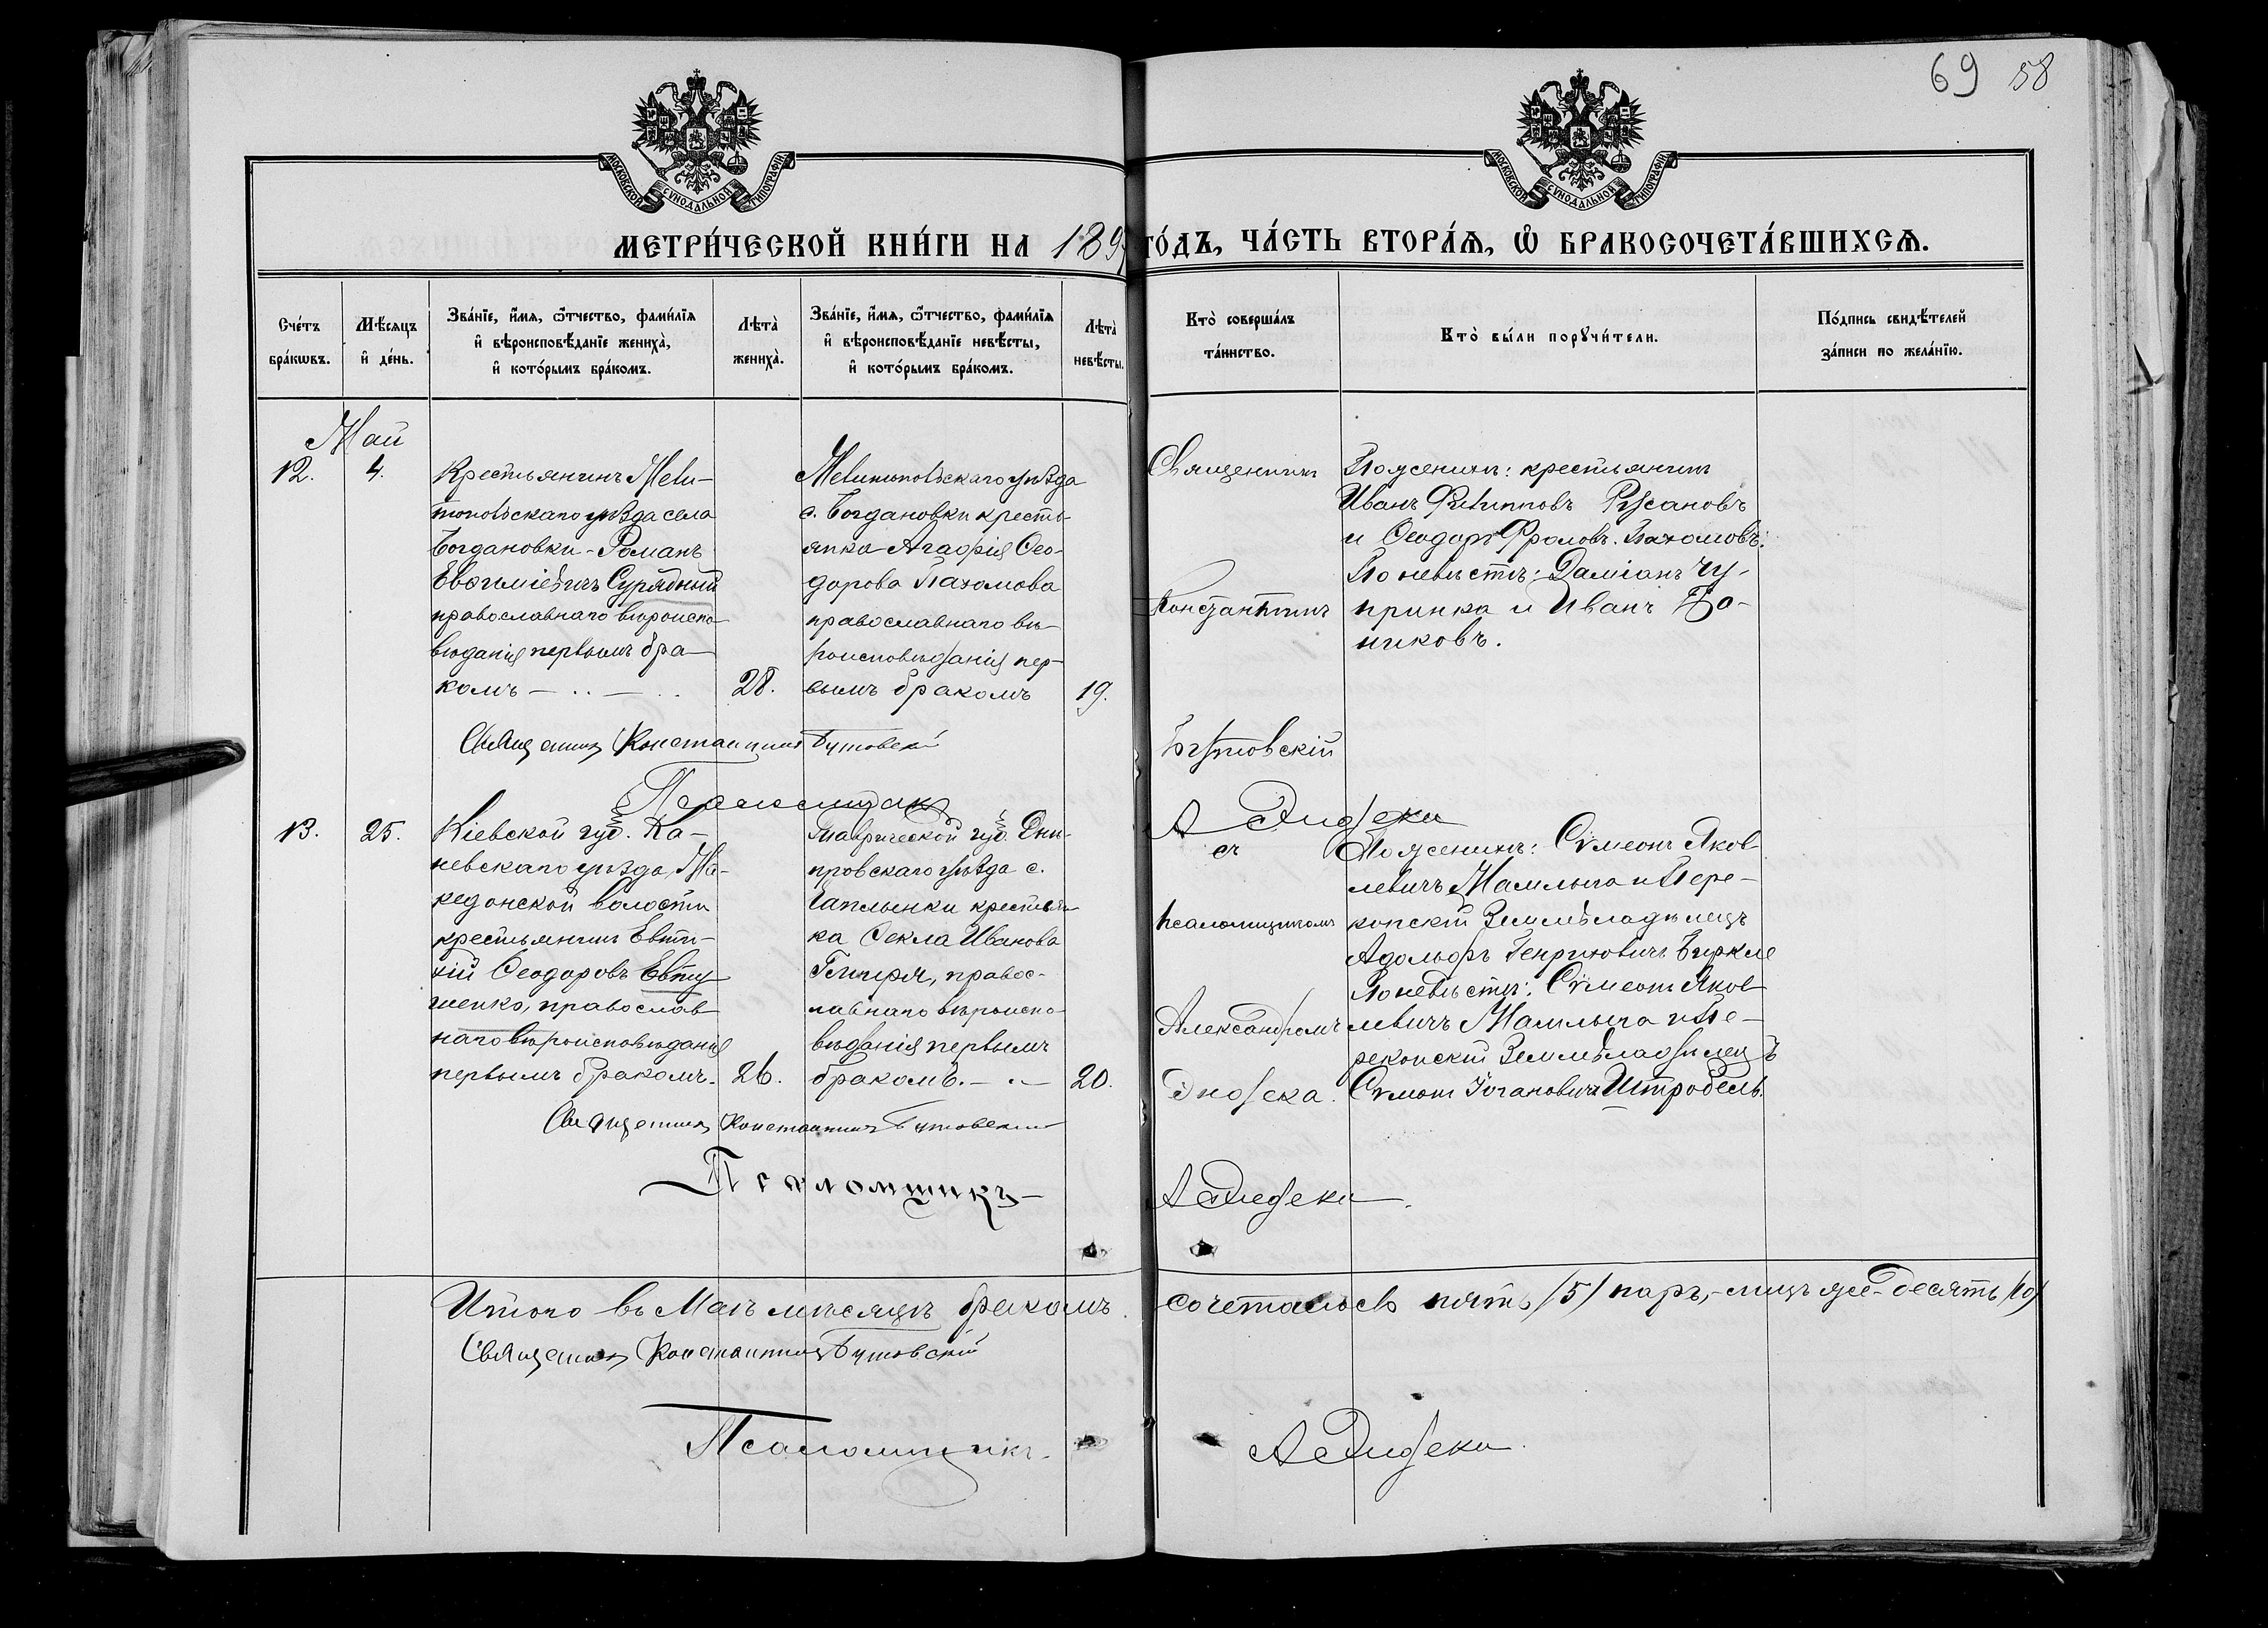 69 58
МОСКОВСКОЙ СѴНОДАЛЬНОЙ ТИПОГРАФІИ
МОСКОВСКОЙ СѴНОДАЛЬНОЙ ТИПОГРАФІИ
МЕТРИ́ЧЕСКОЙ КНИ́ГИ НА 189
ГО́ДЪ, ЧА́СТЬ ВТОРА́Ѧ, Ѽ БРАКОСОЧЕТА́ВШИХСѦ.
Сче́тъ бра́кѡвъ.
Мѣ́сяцъ и҆ де́нь.
Зва́нїе, и҆́мя, ѻ҆́тчество, фами́лїя и҆ вѣроисповѣ́данїе жениха̀, и҆ кото́рымъ бра́комъ.
Лѣта̀ жениха̀.
Зва́нїе, и҆́мя, ѻ҆́тчество, фами́лїя и҆ вѣроисповѣ́данїе невѣ́сты, и҆ кото́рымъ бра́комъ.
Лѣта̀ невѣ́сты.
Кто̀ соверша́лъ та́инство.
Кто̀ бы́ли порꙋчи́тели.
По́дпись свидѣ́телей за́писи по жела́нїю.
Май
12.
4.
Крестьянинъ Мели-
топольскаго уѣзда села
Богдановки - Романъ
Евѳиміевичъ Сурядный
православнаго вѣроиспо-
вѣданія первымъ бра-
комъ
28.
Мелитопольскаго уѣзда
с. Богдановки кресть-
янка Агафія Ѳео-
дорова Пахомова
православнаго вѣ-
роисповѣданія пер-
вымъ бракомъ
19.
Священникъ
Константинъ
Бутовскій
По женихѣ: крестьянинъ
Иванъ Филипповъ Русановъ
и Ѳеодоръ Фроловъ Пахомовъ:
По невѣстѣ: Даміанъ Чу-
принка и Иванъ
никовъ.
Священникъ Константинъ Бутовскій
Псаломщикъ
А
13.
25.
Кіевской губ. Ка-
невскаго уѣзда, Ма-
кедонской волости
крестьянинъ Евти-
хій Ѳеодоровъ Евту-
шенко, православ-
наго вѣроисповѣданія
первымъ бракомъ.
26.
Таврической губ. Дни-
провскаго уѣзда с.
Чаплынки крестьян-
ка Ѳекла Иванова
правос-
лавнаго вѣроиспо-
вѣданія первымъ
бракомъ.
20.
съ
псаломщикомъ
Александромъ
По женихѣ: Сѵмеонъ Яков-
левичъ и Пере-
копскій Землевладѣлецъ
Адольфъ Генриховичъ
По невѣстѣ: Сѵмеонъ Яков-
левичъ и Пе-
рекопскій Землевладѣлецъ
Сѵмонъ Іогановичъ Штробель.
Священникъ Константинъ Бутовскій
Псаломщикъ
А
Итого въ Маѣ мѣсяцѣ бракомъ сочеталось пять /5/ паръ, - лицъ же - десять /10/
Священникъ Константинъ Бутовскій
Псаломщикъ.
А